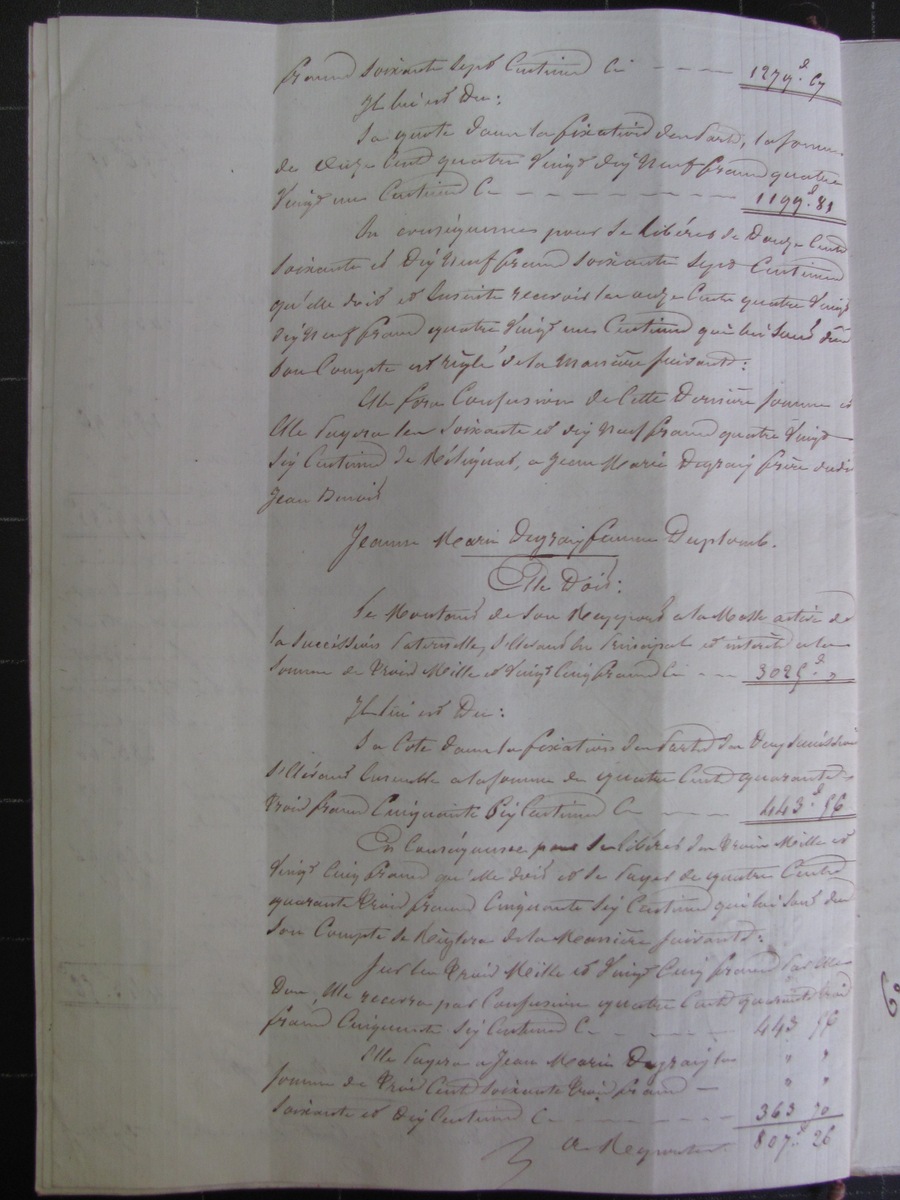 francs soixante sept Centimes Ci - - - - 1279.f 67
Il lui est Du:
Sa quote dans la fixation des parts, la somme
de Onze Cent quatre Vingt dix Neuf francs quatre
Vingt un Centimes Ci - - - - - - - 1199.f 81
En conséquence pour se libérer de Douze Cents
soixante et Dix Neuf francs soixante Sept Centimes
qu'elle doit et Ensuite recevoir les onze Cents quatre Vingt
dix Neuf francs quatre Vingt un Centimes qui lui sont dus
Son Compte est réglé de la Manière suivante:
Elle fera Confusion de Cette Dernière somme et
Elle payera les Soixante et dix Neuf francs quatre Vingt
Six Centimes de Reliquat, a Jean Marie Degraix frère dudit
Jean Benoit
Jeanne Marie Degraix femme Duplomb.
Elle Doit:
Le Montant de son Rapport a la Masse active de
la Succession paternelle, S'élevant En principal et intérêts a la
Somme de Trois Mille et Vingt Cinq francs Ci - - - 3025.f "
Il lui est Du:
Sa Cote dans la fixation des parts des Deux Successions
S'élevant Ensemble a la somme de quatre Cent quarante
trois francs Cinquante Six Centimes Ci - - - - 443.f 56
En Conséquence pour Se libérer des Trois Mille et
Vingt Cinq francs qu'elle doit et Se payer de quatre Cents
quarante trois francs Cinquante Six Centimes qui lui sont dus
Son Compte Se Réglera de la Manière suivante:
Sur les Trois Mille et Vingt Cinq francs par Elle
Dus, Elle recevra par Confusion quatre Cents quarante trois
francs Cinquante Six Centimes Ci - - - - 443 56
Elle payera a Jean Marie Degraix la " "
somme de Trois Cent soixante trois francs - " "
Soixante et Dix Centimes Ci - - - - - 363 70
A Reporter. 807.f 26